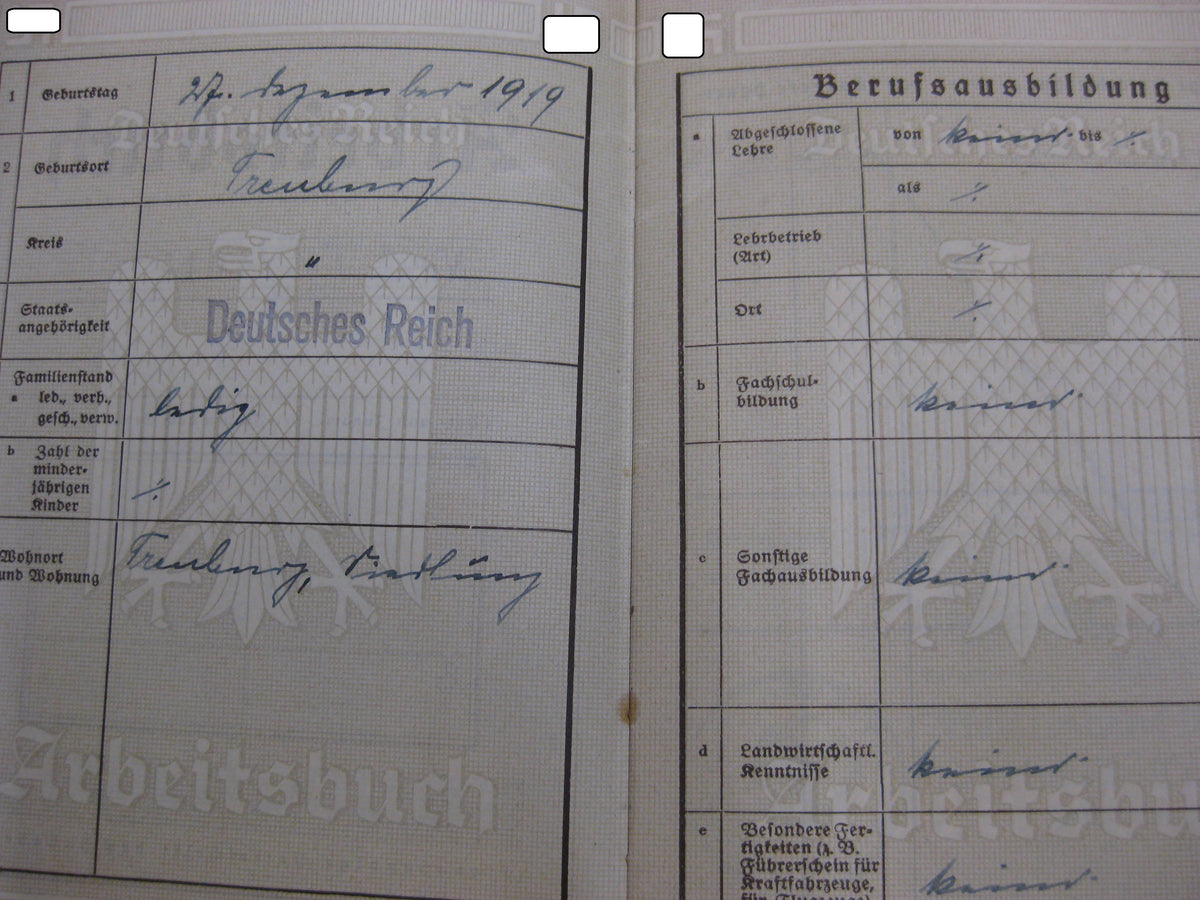 1 Geburtstag 27. Dezember 1919
Deutsches Reich
2 Geburtsort Treuburg
Kreis "
Staats-
angehörigkeit Deutsches Reich
Familienstand
a led., verh.,
gesch., verw. ledig
b Zahl der
minder-
jährigen
Kinder ./.
Wohnort
und Wohnung Treuburg, Siedlung
Arbeitsbuch
Berufsausbildung
a Abgeschlossene
Lehre von keine bis ./.
Deutsches Reich
als ./.
Lehrbetrieb
(Art) ./.
Ort ./.
b Fachschul-
bildung keine
c Sonstige
Fachausbildung keine
d Landwirtschaftl.
Kenntnisse keine
Arbeitsbu
e Besondere Fer-
tigkeiten (z. B.
Führerschein für
Kraftfahrzeuge, keine
für Flugzeuge)